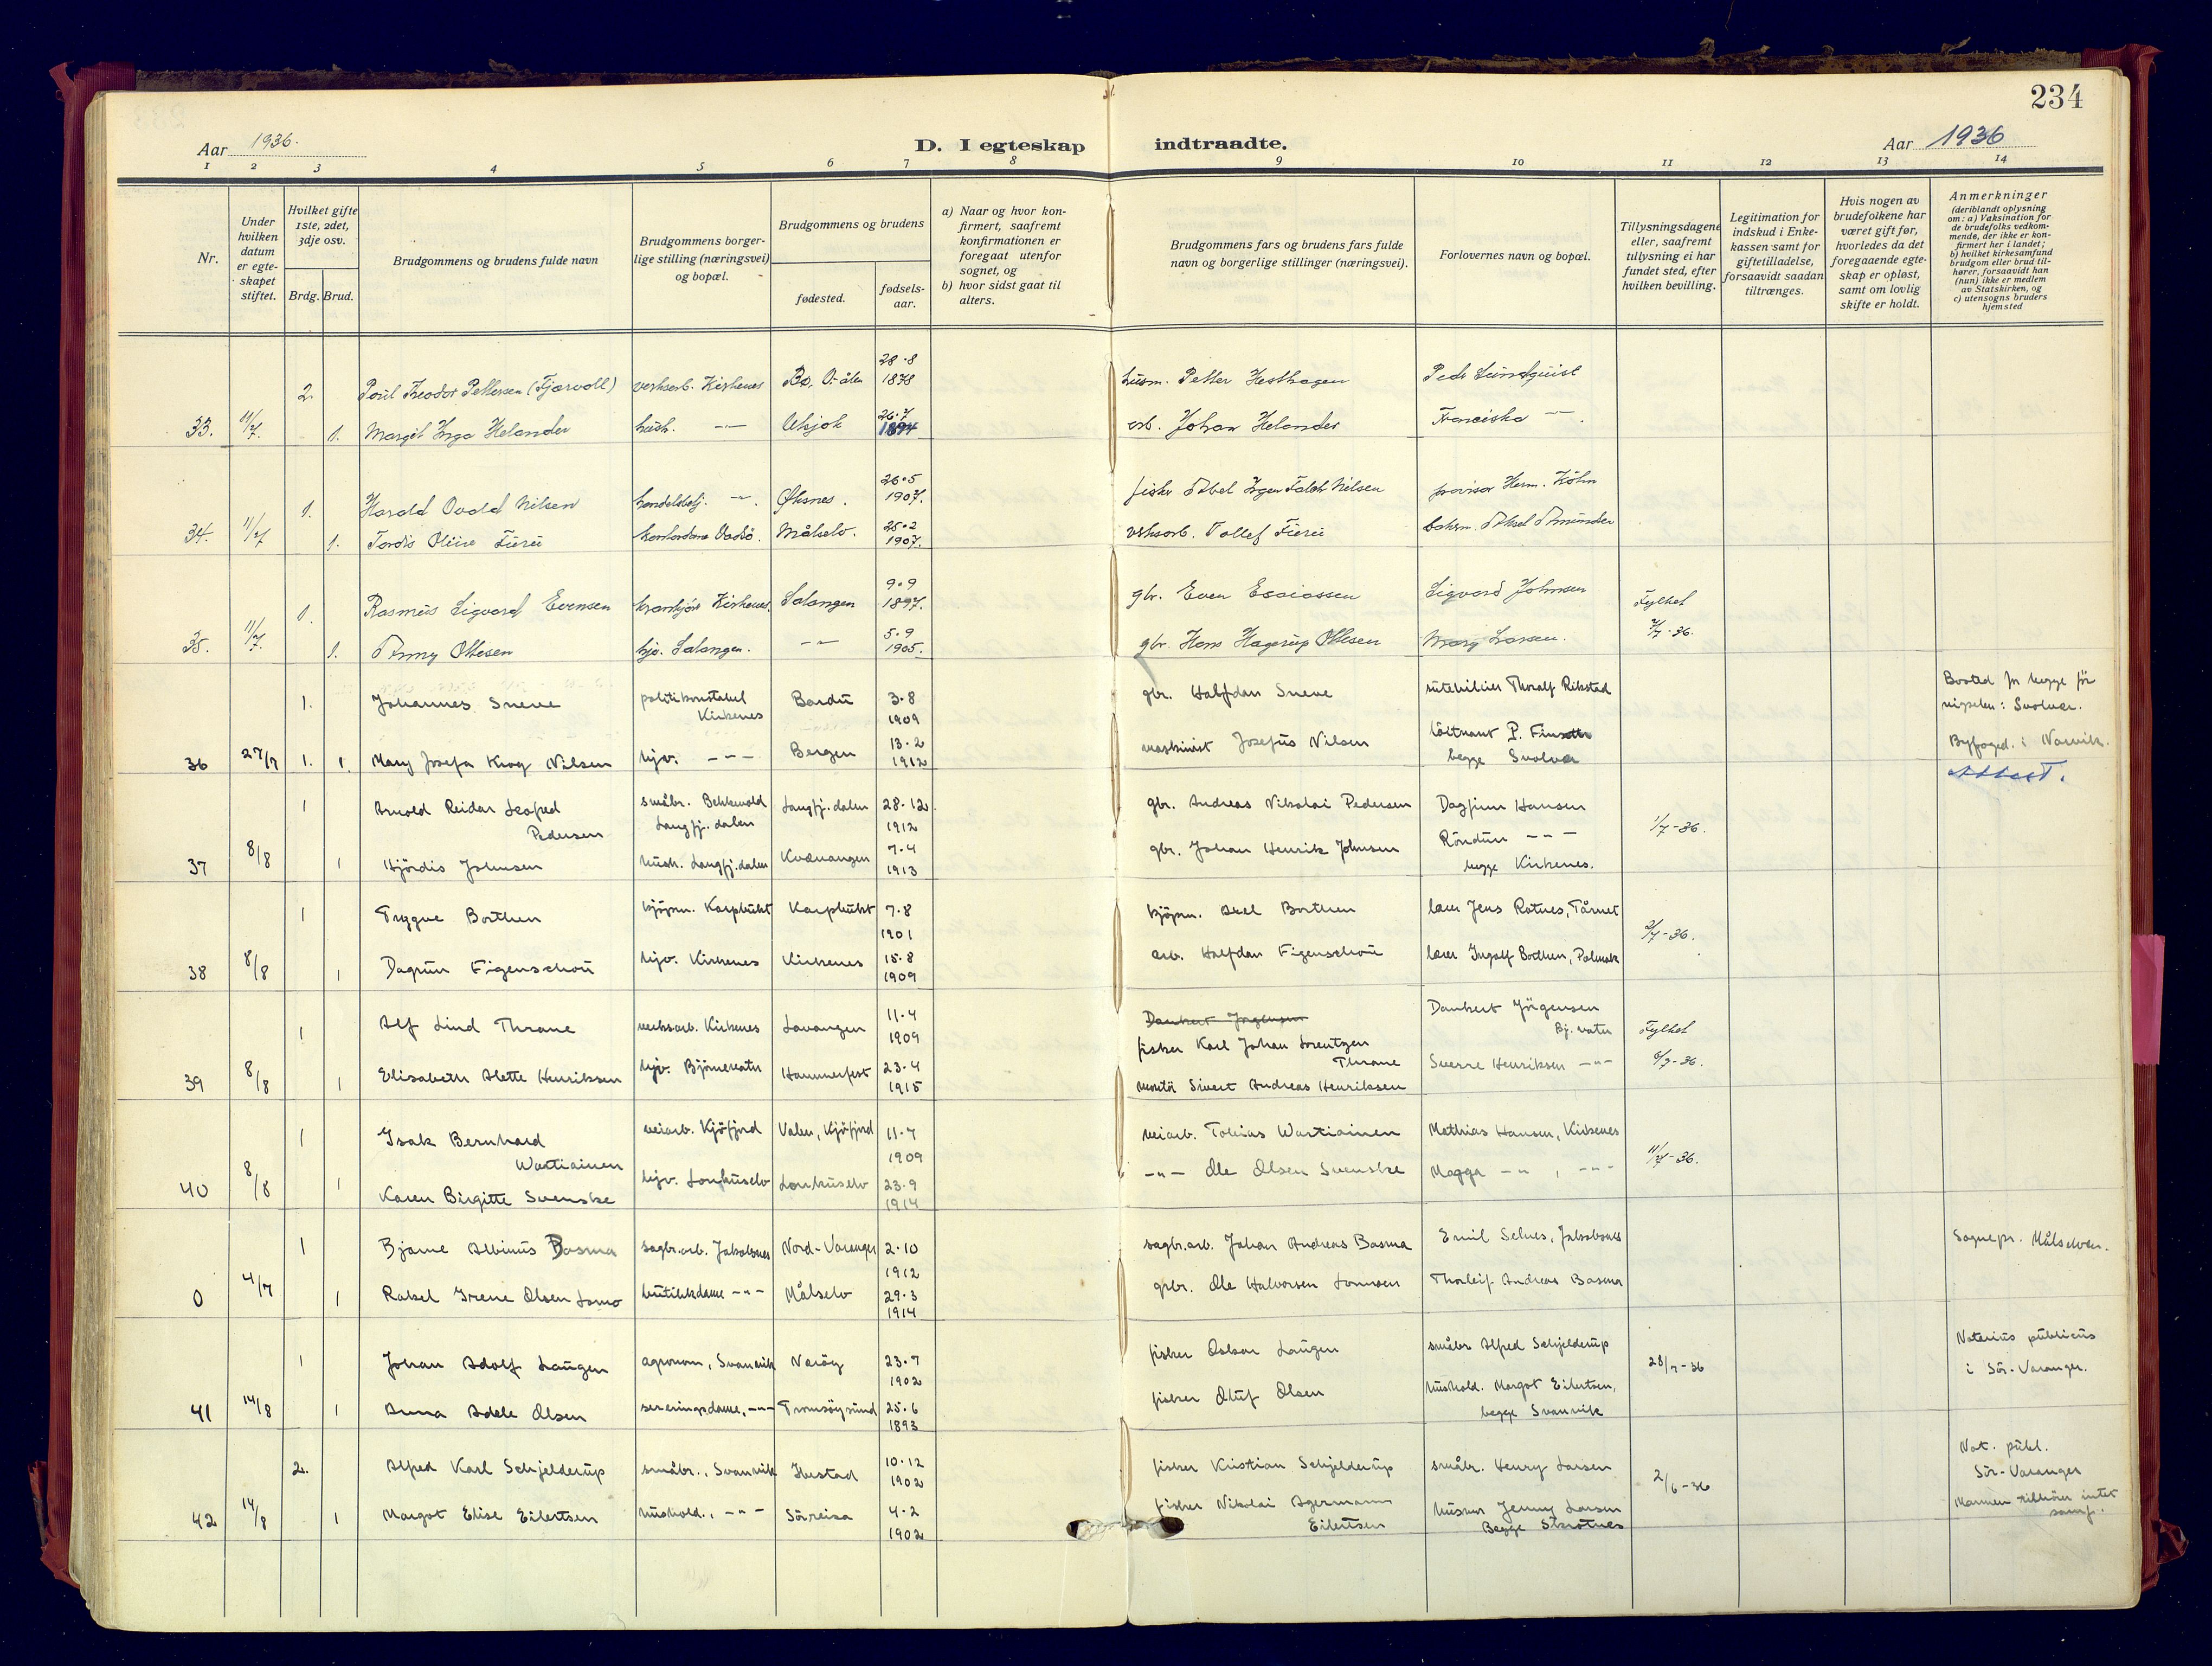 234
Aar 1936.
D. I egteskap indtraadte.
Aar 1936
1 2 3 4 5 6 7 8 9 10 11 12 13 14
Nr.
Under hvilken datum er egteskapet stiftet.
Hvilket gifte 1ste, 2det, 3dje osv.
Brdg. Brud.
Brudgommens og brudens fulde navn
Brudgommens borgerlige stilling (næringsvei) og bopæl.
Brudgommens og brudens
fødested.
fødselsaar.
a) Naar og hvor konfirmert, saafremt konfirmationen er foregaat utenfor sognet, og
b) hvor sidst gaat til alters.
Brudgommens fars og brudens fars fulde navn og borgerlige stillinger (næringsvei).
Forlovernes navn og bopæl.
Tillysningsdagene eller, saafremt tillysning ei har fundet sted, efter hvilken bevilling.
Legitimation for indskud i Enkekassen samt for giftetilladelse, forsaavidt saadan tiltrænges.
Hvis nogen av brudefolkene har været gift før, hvorledes da det foregaaende egteskap er opløst, samt om lovlig skifte er holdt.
Anmerkninger
(deriblandt oplysning om: a) Vaksination for de brudefolks vedkommende, der ikke er konfirmert her i landet; b) hvilket kirkesamfund brudgom eller brud tilhører, forsaavidt han (hun) ikke er medlem av Statskirken, og c) utensogns bruders hjemsted
2. Paul Theodor Pettersen (Fjærvoll) verksarb. Kirkenes Bø, 28.8 1878 husm. Petter Hesthagen Peder Lundquist
33. 11/7. 1. Margit Inga Helander hush. -"- Utsjok 26.7 1894 arb. Johan Helander Franciska -"-.
1. Harald Ovald Nilsen handelsbetj. -"-. Øksnes. 26.5 1907. fisker Abel Falch Nilsen provisor Herm. Köhn
34. 11/7 1. Tordis Olüve kontordame Vadsö. Målselv. 25.2 1907. verksarb. Tollef Aksel Amundsen
1. Rasmus Sigvard Evensen Kirkenes. Salangen 9.9 1897. gbr. Even Esaiassen Sigvard Johnsen Fylket
35. 11/7. 1. Anny Ottesen hjv. Salangen. -"- 5.9 1905. gbr. Hans Hagerup Ottesen Mary Larsen. 7/7-36.
1. Johannes Sneve politikonstabel Kirkenes Bardu 3.8 1909 gbr. Halfdan Sneve Thoralf Rikstad Bosted for begge før vigselen: Svolvær.
36 27/7 1. 1. Mary Josefa Krog Nilsen hjv. -"- Bergen 13.2 1912 maskinist Josefus Nilsen löitnant P. begge Svolvær Byfoged. i Narvik.
Attest.
1 Arnold Reidar Leofred Pedersen småbr. Bekkevold Langfj.dalen Langfj.dalen 28.12 1912 gbr. Andreas Nikolai Pedersen Dagfinn Hansen
37 8/8 1 Hjördis Johnsen hush. Langfj.dalen Kvænangen 7.4 1913 gbr. Johan Henrik Johnsen Röndun -"- begge Kirkenes. 1/7-36.
1 Trygve Borthen kjöpm. Karpbukt Karpbukt 7.8 1901 kjöpm. Axel Borthen lærer Jens Rotnes, Tårnet
38 8/8 1 Dagrun Figenschou hjv. Kirkenes Kirkenes 15.8 1909 arb. Halfdan Figenschou lærer Ingolf Borthen, Polmak 2/7-36.
1 Alf Lind Thrane verksarb. Kirkenes Lavangen 11.4 1909 Dankert Jørgensen fisker Karl Johan Lorentzen Thrane Dankert Jörgensen Bj. vatn Fylket
39 8/8 1 Elisabeth Alette Henriksen hjv. Björnevatn Hammerfest 23.4 1915 montör Sivert Andreas Henriksen Sverre Henriksen -"- 6/7-36.
1 Isak Bernhard Wartiainen veiarb. Kjöfjord Valen, Kjöfjord 11.7 1909 veiarb. Tobias Wartiainen Mathias Hansen, Kirkenes
40 8/8 1 Karen Birgitte Svenske hjv. Lonkuselv Lonkuselv 23.9 1914 -"- Ole Olsen Svenske Magga -"-, -"- 11/7-36.
1 Bjarne Albinus Basma sagbr.arb. Jakobsnes Nord-Varanger 2.10 1912 sagbr.arb. Johan Andreas Basma Emil Selnes, Jakobsnes Sognepr. Målselven.
0 4/7 1 Rakel Irene Olsen Lomo butikkdame -"- Målselv 29.3 1914 grbr. Ole Halvorsen Thorleif Andreas Basma
1 Johan Adolf Laugen agronom, Svanvik Næröy 23.7 1902 fisker Oskar Laugen småbr. Alfred Schjelderup Notarius publicus i Sör-Varanger.
41 14/8 1 Anna Adele Olsen serveringsdame, -"- Tromsöysund 25.6 1893 fisker Oluf Olsen hushold. Margot Eilertsen, begge Svanvik 28/7-36
2. Alfred Karl Schjelderup småbr., Svanvik Ibestad 10.12 1902 fisker Kristian Schjelderup småbr. Henry Larsen Not. publ. Sör-Varanger
42 14/8 1 Margot Elise Eilertsen hushold., -"- Sörreisa 4.2 1902 fisker Nikolai Agermann Eilertsen husmor Jenny Larsen Begge Skrotnes 2/6-36 Mannen tilhörer intet samf.